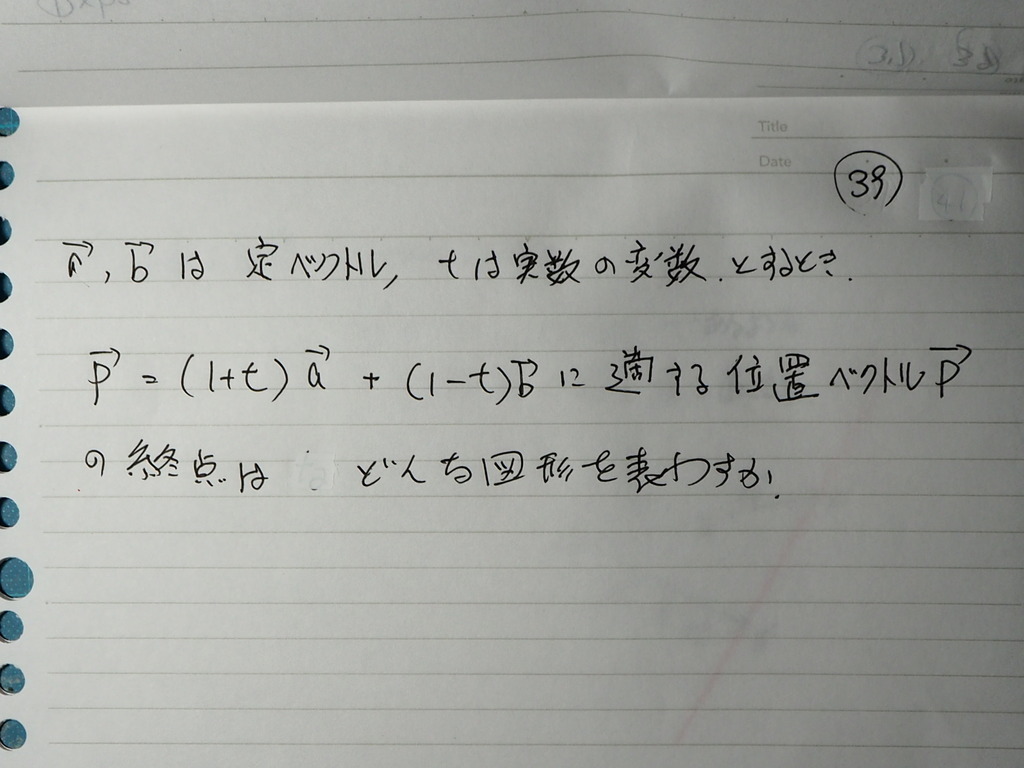 Title
Date
39
a⃗, b⃗ は 定ベクトル, tは実数の変数. とするとき.
p⃗ = (1+t) a⃗ + (1-t)b⃗ に適する位置ベクトルp⃗
の終点は どんな図形を表わすか.